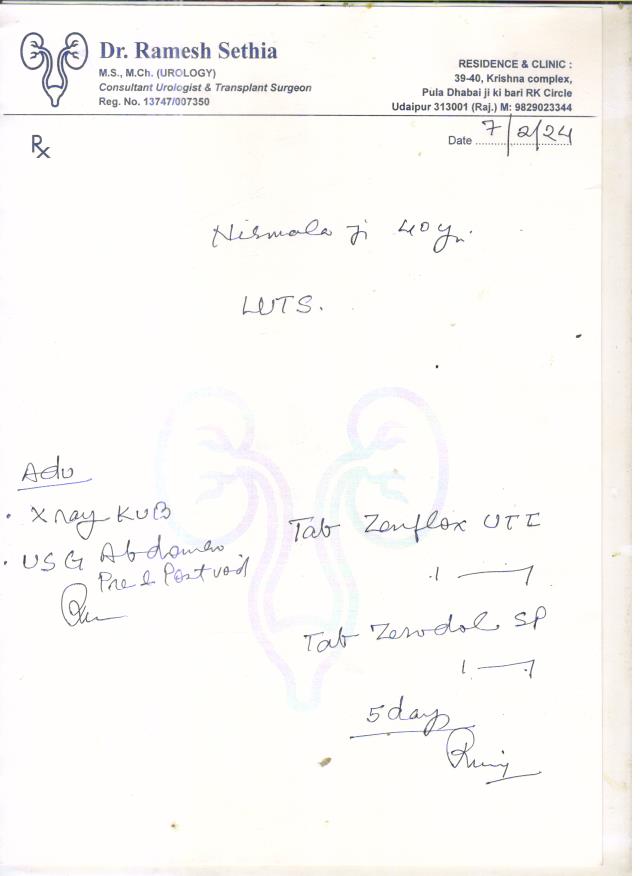 Dr. Ramesh Sethia
M.S., M.Ch. (UROLOGY)
Consultant Urologist & Transplant Surgeon
Reg. No. 13747/007350
RESIDENCE & CLINIC :
39-40, Krishna complex,
Pula Dhabai ji ki bari RK Circle
Udaipur 313001 (Raj.) M: 9829023344
Date 7/2/24
Rx
Nirmala ji 40 yr.
LUTS.
Adv
• X ray KUB
• USG Abdomen
Pre & Post void
Tab Zenflox UTI
1 — 1
Tab Zerodol SP
1 — 1
5 day